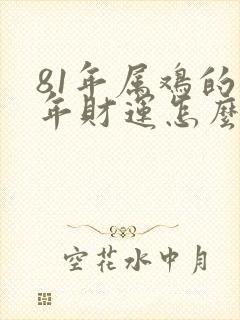 81年属鸡的
年财运怎麽
空花水中月